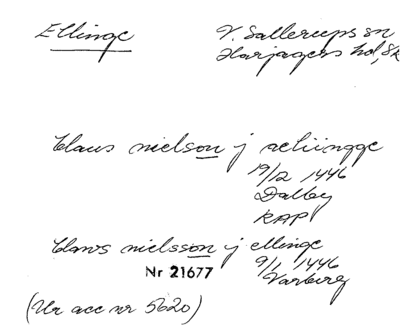 Ellinge
V. Sallerups sn
Harjagers hd, Sk
Claus nielson j aeliingge
19/12 1446
Dalby
RAP
Claus nielsson j ellinge
9/1 1446
Varberg
Nr 21677
(Ur acc nr 5620)